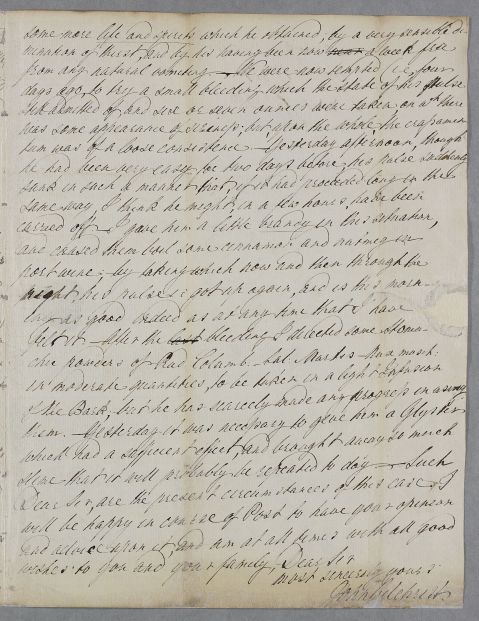 some more life and spirits which he obtained, by a very sensible di-
minution of thirst, and by his having been now near a week free
from any natural vomiting — We were now tempted i.e. four
days ago, to try a small bleeding which the state of his Pulse
still admitted of, and six or seven ounces were taken on wch there
was some appearance of siziness; but upon the whole the crassamen-
tum was of a loose consistence — Yesterday afternoon, though
he had been very easy for two days before, his pulse suddenly
sank in such a manner that if it had proceeded long in the
same way, I think he might in a few hours, have been
carried off. I gave him a little brandy in this situation,
and caused them boil some cinnamon and nutmeg in
port wine: by taking which now and then through the
night, his pulse: got up again, and is this morn-
ing as good indeed as at any time that I have
felt it — After the last bleeding I directed some stoma-
chic powders of Rad Columb. Sal Martis
in moderate quantities, to be taken in a light Infusion
of the Bark, but he has scarcely made any progress in using
them. — Yesterday it was necessary to give him a Glyster
which had a sufficient effect, and brought away so much
slime that it will probably be repeated to day — Such
Dear Sir, are the present circumstances of this case. I
will be happy in course of Post to have your openion
and advice upon it, and am at all times with all good
wishes to you and your family, Dear Sir
most sincerely yours
John Gilchrist